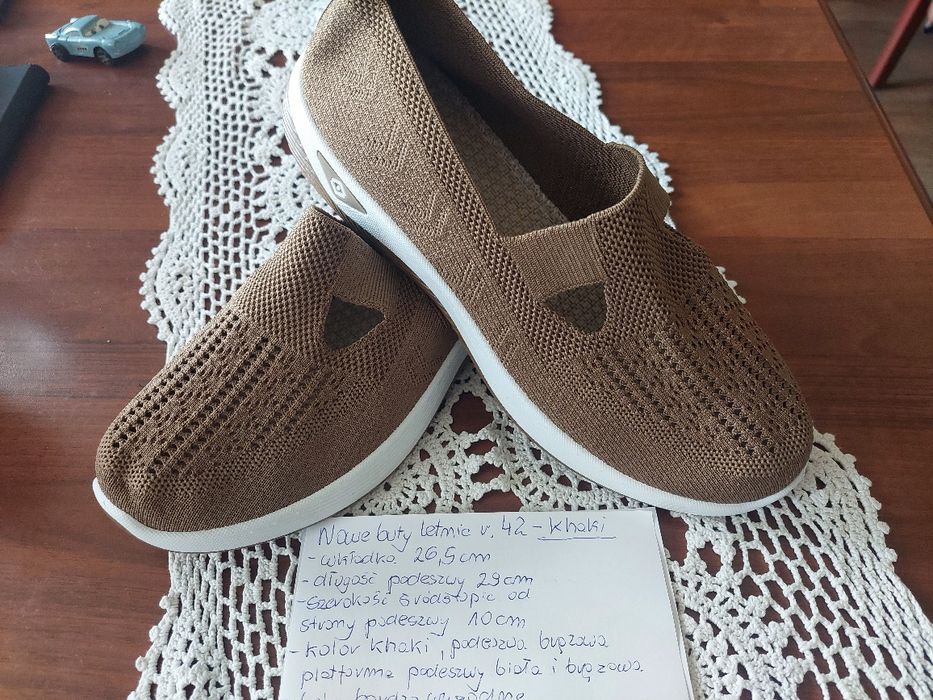 Nowe buty letnie r. 42 - khaki
- wkładka 26,5 cm
- długość podeszwy 29 cm
- szerokość śródstopie od
strony podeszwy 10 cm
- kolor khaki, podeszwa brązowa
platforma podeszwy biała i brązowa
bardzo wygodne